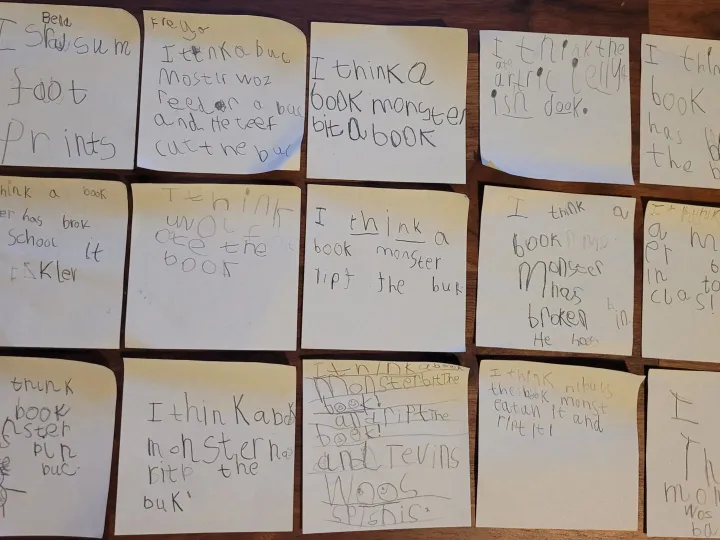 Bela
I sfal sum
foot
prints
Freya
I think a buc
mostir woz
reed a buc
and He teef
cut the buc
I think a
book monster
bit a book
I think the
ate
artric jelly
ish dook.
I thin
book
has b
the b
hink a book
er has brok
school It
I think
ate the
book
I think a
book monster
ript the buk
I think a
book
monster
has
broken in
He has
a m
er b
in to
clas!
think
book
nster
buc.
I think a book
monster
ritp the
buk'
I think a book
monster bit the
book!
and ript the
book!
and revins
woos
spishis.
I think nibuls
the book monst
eatan it and
ript It!
I
Th
mon
wos